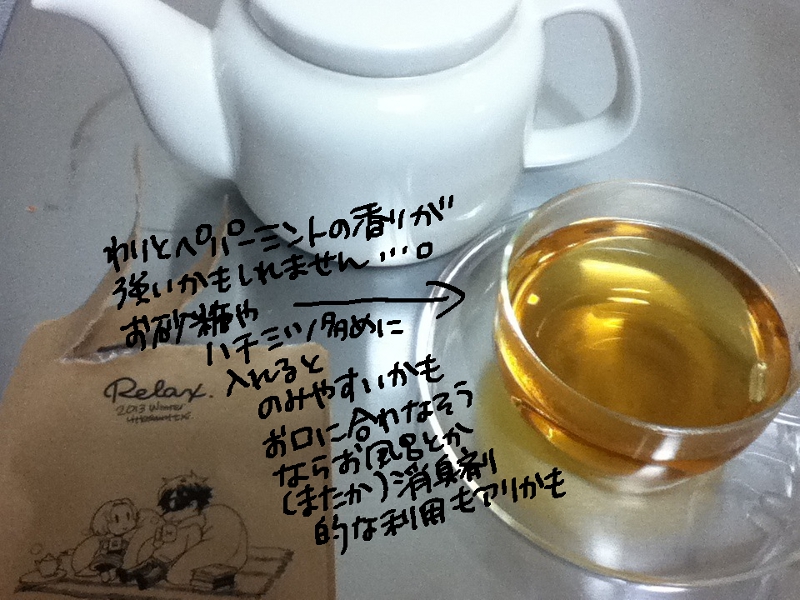 わりとペパーミントの香りが
強いかもしれません…。
お砂糖や
ハチミツ多めに
入れると
のみやすいかも
お口に合わなそう
ならお風呂とか
(またか)消臭剤
的な利用もアリかも
Relax.
2013 Winter